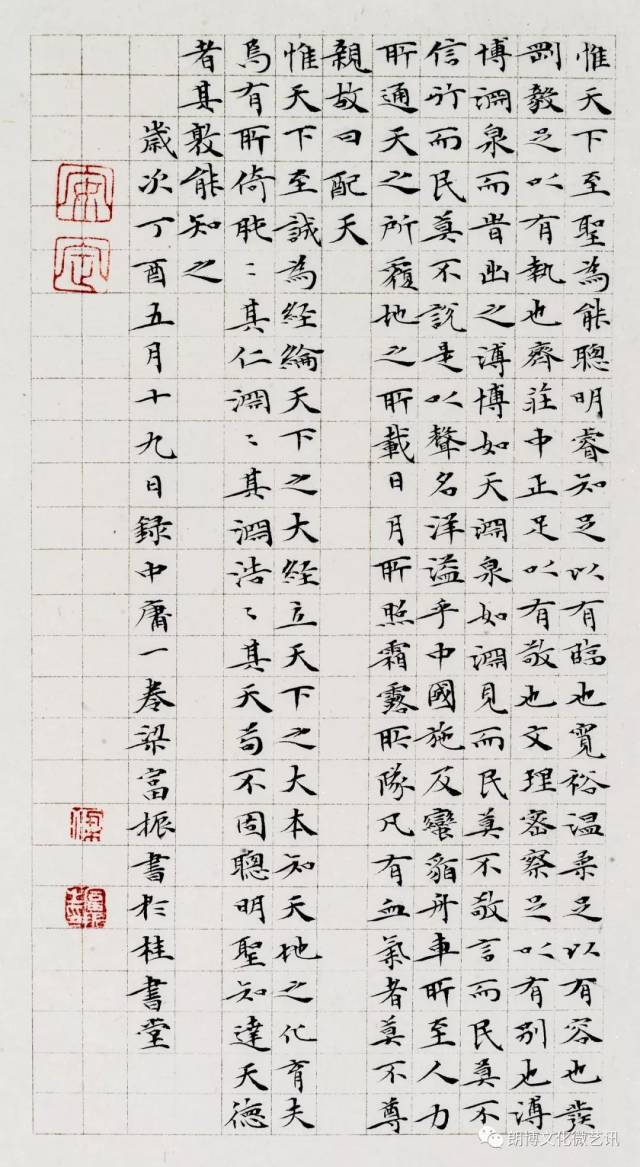 惟天下至聖為能聰明睿知足以有臨也寬裕温柔足以有容也發
剛毅足以有執也齊莊中正足以有敬也文理密察足以有别也溥
博淵泉而旹出之溥博如天淵泉如淵見而民莫不敬言而民莫不
信行而民莫不說是以聲名洋溢乎中國施及蠻貊舟車所至人力
所通天之所覆地之所載日月所照霜露所隊凡有血氣者莫不尊
親故曰配天
惟天下至誠為能經綸天下之大經立天下之大本知天地之化育夫
焉有所倚肫〻其仁淵〻其淵浩〻其天苟不固聰明聖知達天德
者其孰能知之
歲次丁酉五月十九日録中庸一卷梁富振書於桂書堂
朗博文化微艺讯